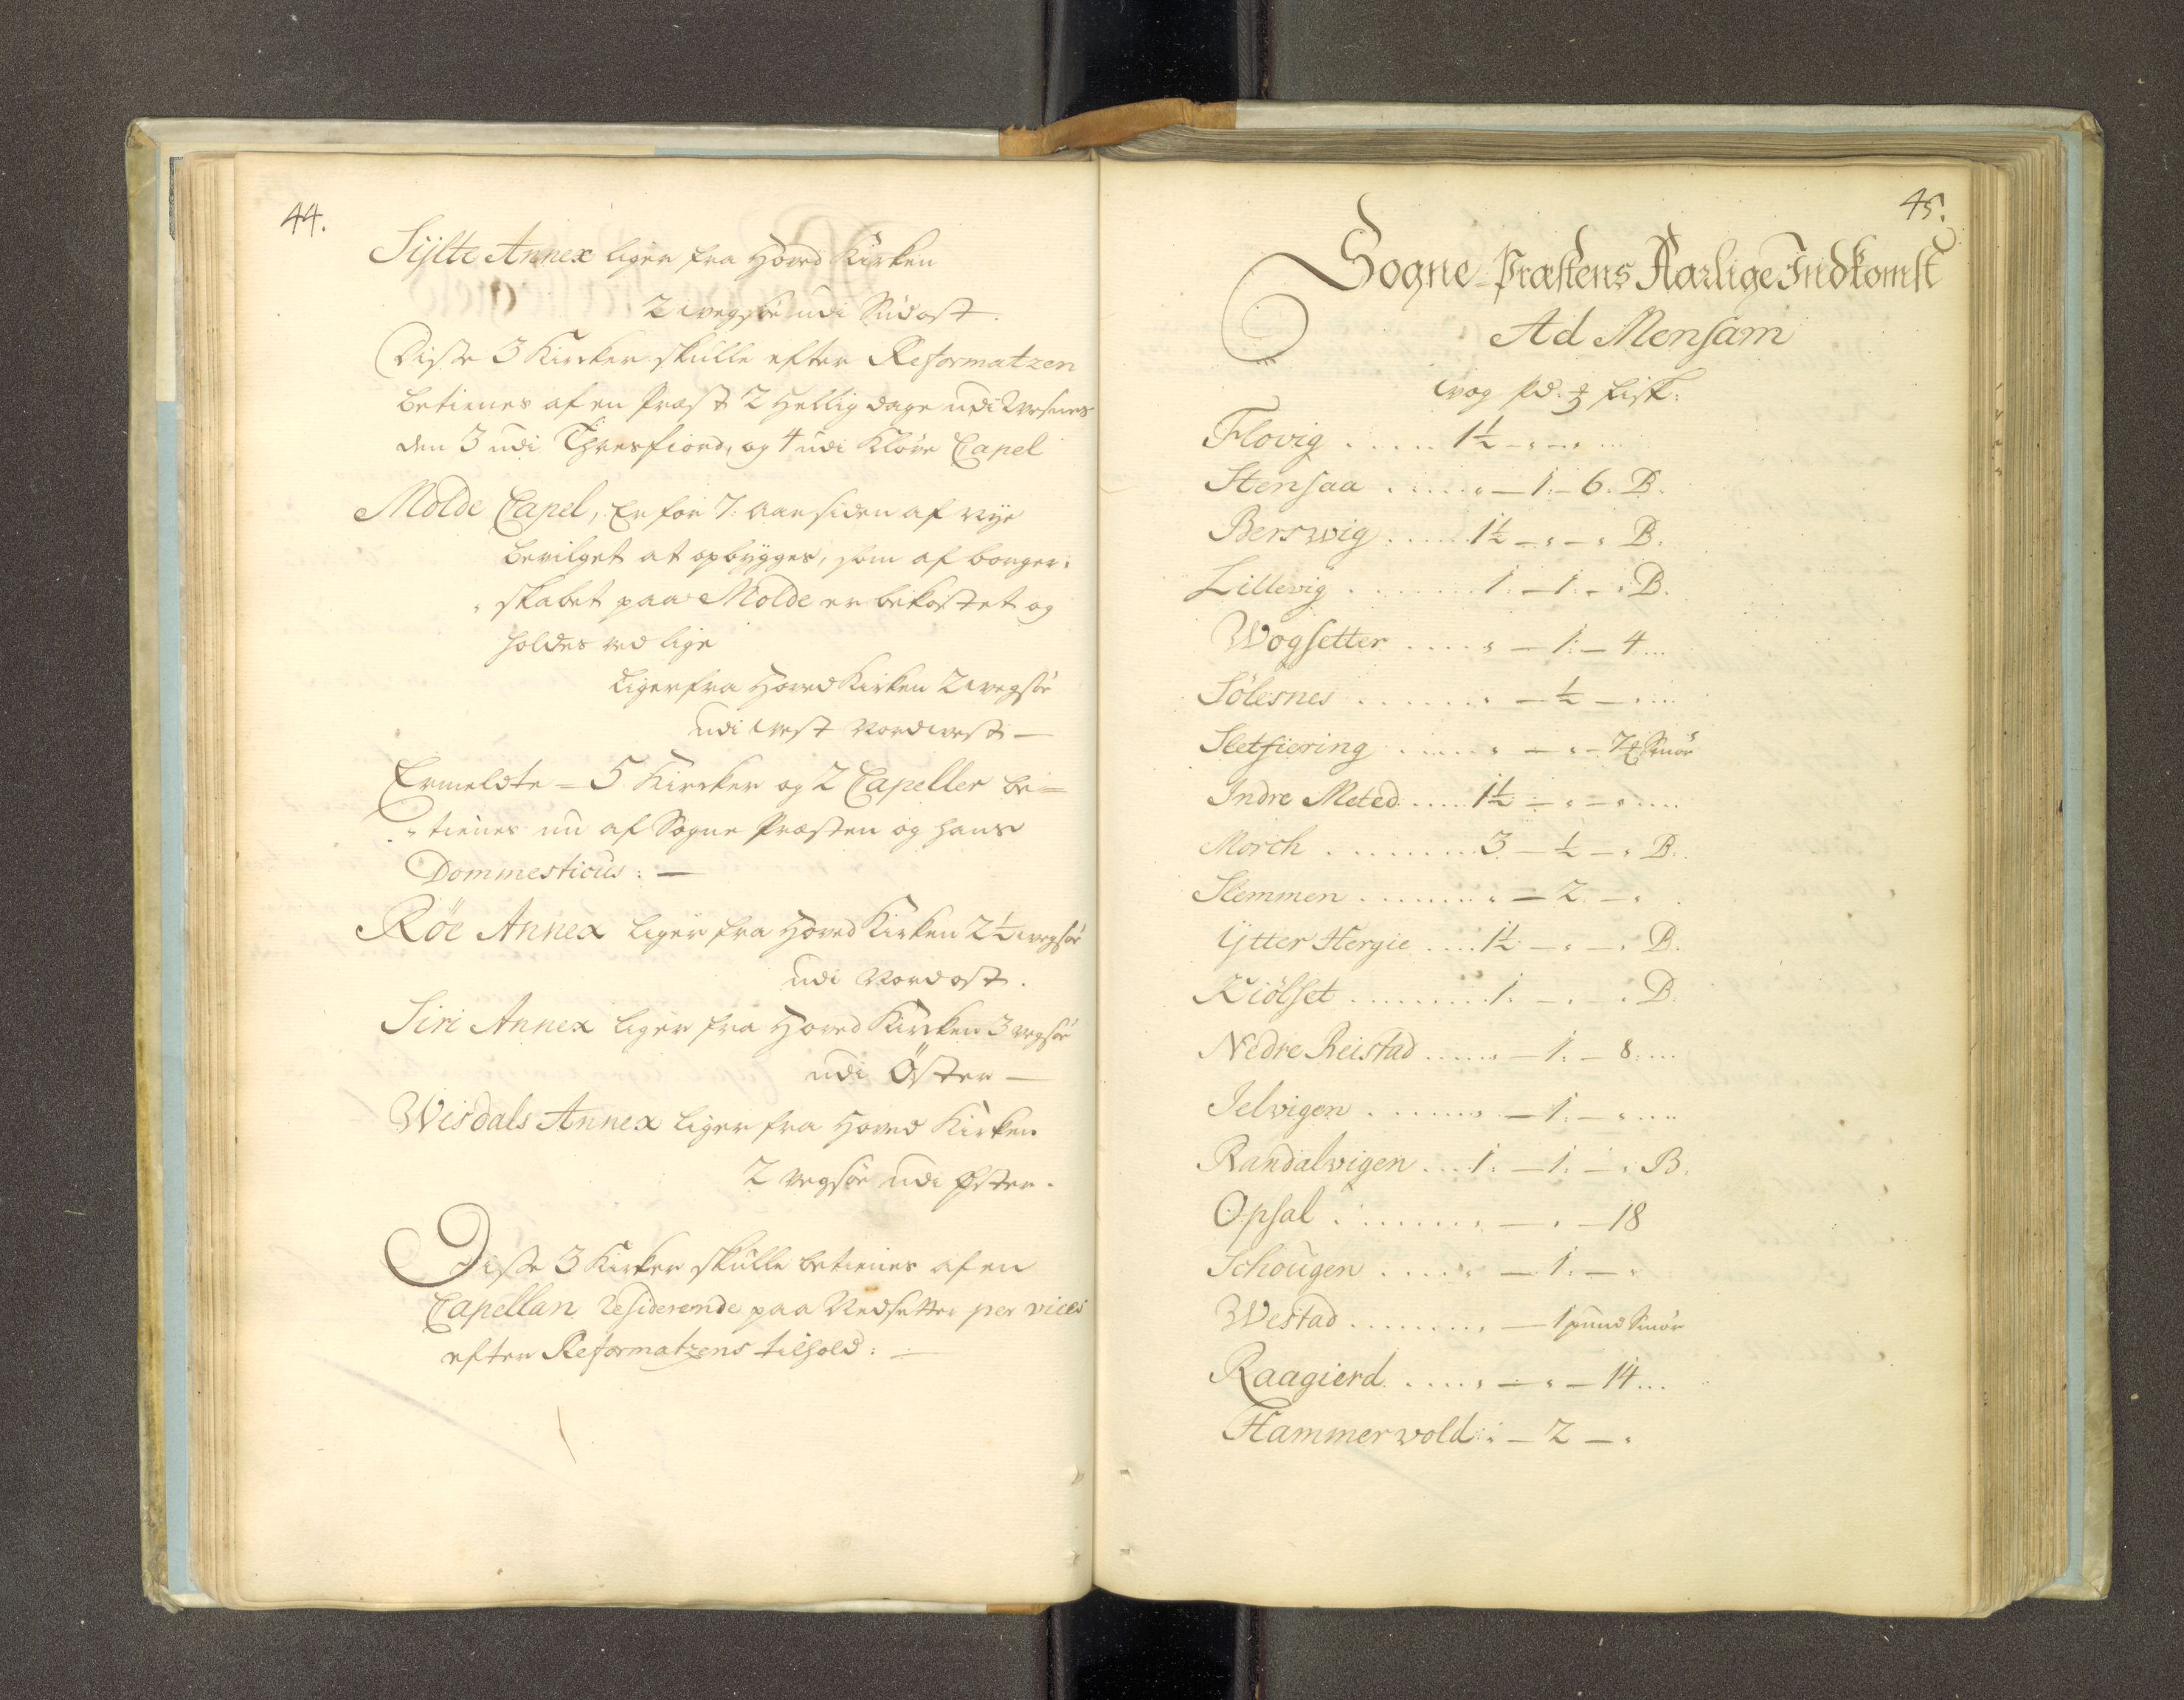 44.
Sylte Annex liger fra Hoved Kirken
2 wegsøe udi Sudost.
Disse 3 Kircker skulle efter Reformatzen
betienes af en Præst 2 Hellig dage udi Wesnes
den 3 udi Thresfiord, og 4 udi Kløve Capel
Molde Capel, Er for 7. aar siden af nye
bevilget at opbygges, som af borger„
„skabet paa Molde er bekostet og
holdes ved lige
Liger fra Hoved Kirken 2 wegsøe
udi West Nordwest —
Ermeldte = 5 Kircker og 2 Capeller be=
„tienes nu af Sogne Præsten og hans
Dommesticus: —
Röe Annex liger fra Hoved Kirken 2½ wegsøe
udi Nordost.
Siri Annex liger fra Hoved Kircken 3 wegsøe
udi Öster —
Wisdals Annex liger fra Hoved Kirken
2 wegsøe udi Øster.
Disse 3 Kirker skulle betienes af en
Capellan Residerende paa Nedsetter per vices
efter Reformatzens tilhold: —
45.
Sogne-Præstens Aarlige Indkomst
Ad Mensam
wog pd. ℔ fisk:
Flovig ..... 1½ - „ - „ ...
Stensaa ..... „ — 1. - 6. B.
Berswig ..... 1½ - „ - „ B.
Lillevig ....... 1. — 1. - „ B.
Wogsetter .... „ — 1. — 4 ...
Sölesnes ...... „ — ½ — „ ...
Sletfiering ..... „ — „ — 7 ℔ Smör
Indre Meted .... 1½ — „ — „ ....
Morch ......... 3 — ½ — „ B.
Slemmen ........ „ — 2. — „
Ÿtter Hergie .... 1½ — „ — „ B.
Kiölset ......... 1. — „ — „ B.
Nedre Reistad ...... „ — 1. — 8. ....
Jelvigen ....... „ — 1. — „ ....
Randalvigen ... 1. — 1. — „ B.
Opsal ........ „ — „ — 18
Schougen ..... „ — 1. — „
Westad ........ „ — 1 pund Smör
Raagierd ..... „ — „ — 14 ...
Hammervold : „ — 2 — „